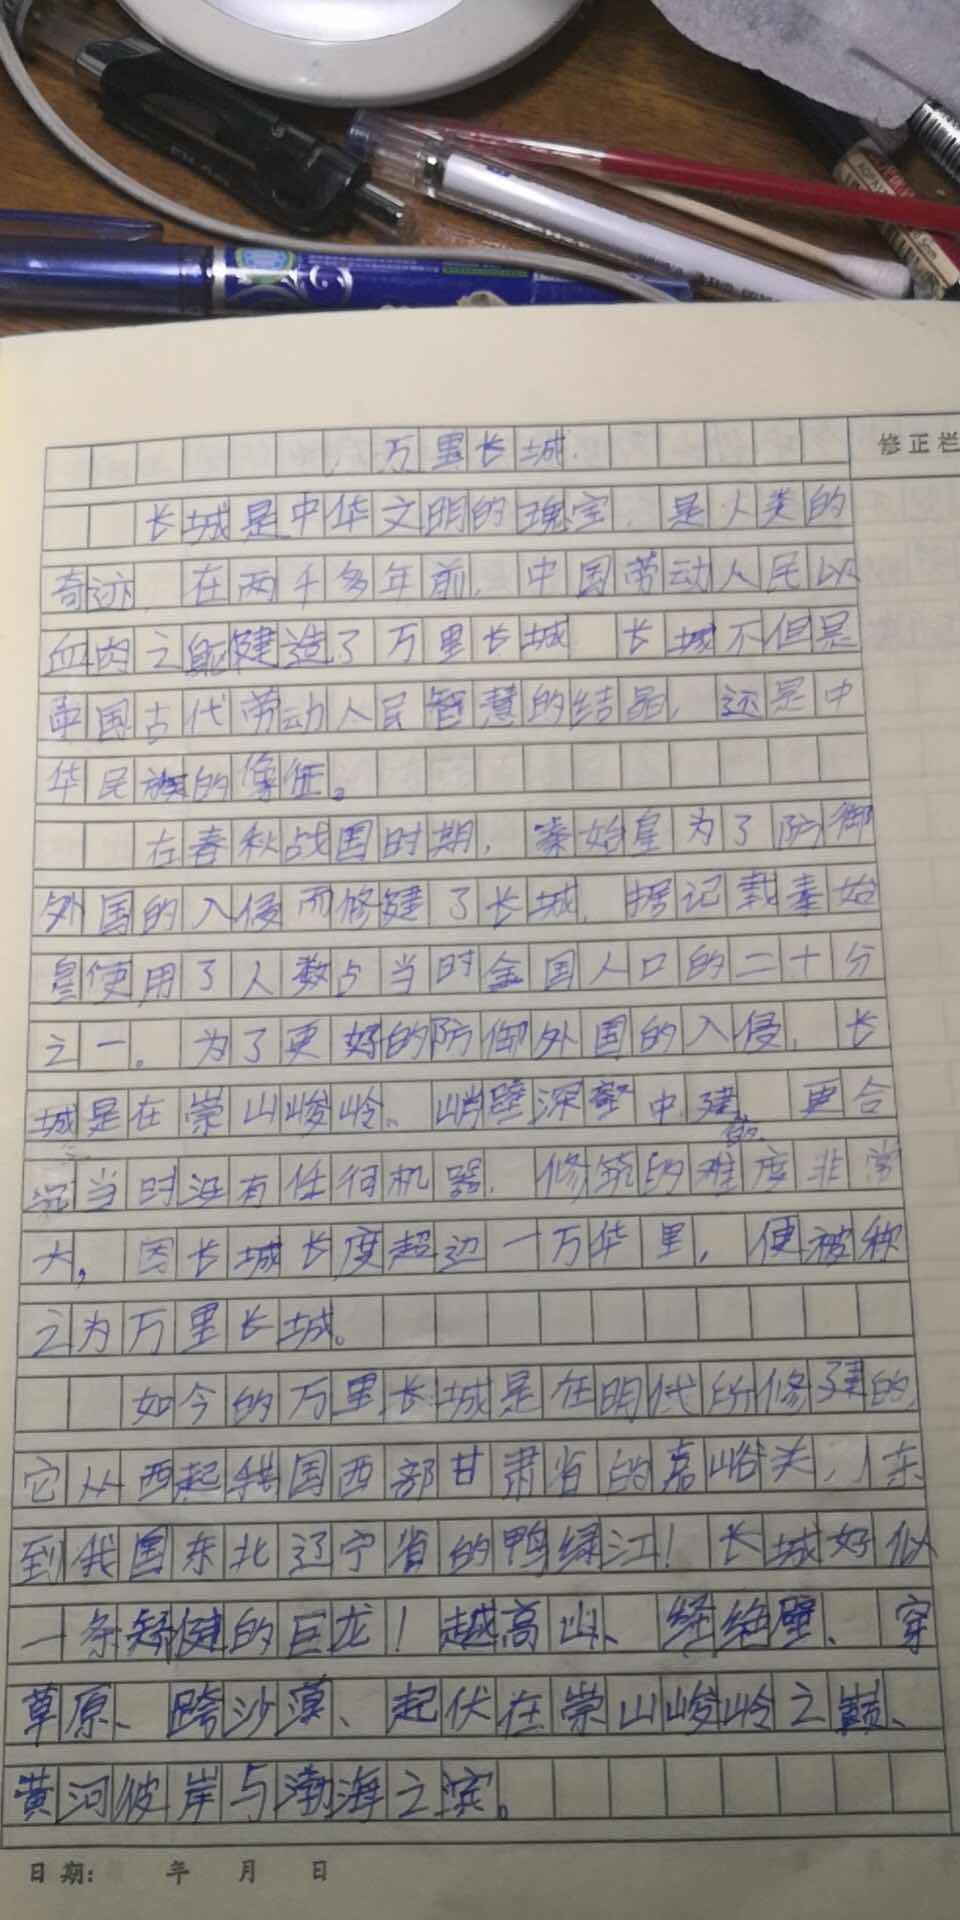 万里长城
修正栏
长城是中华文明的瑰宝,是人类的
奇迹,在两千多年前,中国劳动人民以
血肉之躯健造了万里长城 长城不但是
中国古代劳动人民智慧的结晶,还是中
华民族的像征。
在春秋战国时期,秦始皇为了防御
外国的入侵而修健了长城,据记载秦始
皇使用了人数占当时全国人口的二十分
之一。为了更好的防御外国的入侵,长
城是在崇山峻岭、峭壁深壑中建的 更合
况当时没有任何机器,修筑的难度非常
大,因长城长度超过一万华里,便被称
之为万里长城。
如今的万里长城是在明代所修建的
它从西起我国西部甘肃省的嘉峪关,东
到我国东北辽宁省的鸭绿江!长城好似
一条矫健的巨龙!越高山、经绝壁、穿
草原、跨沙漠、起伏在崇山峻岭之巅、
黄河彼岸与渤海之滨。
日期: 年 月 日